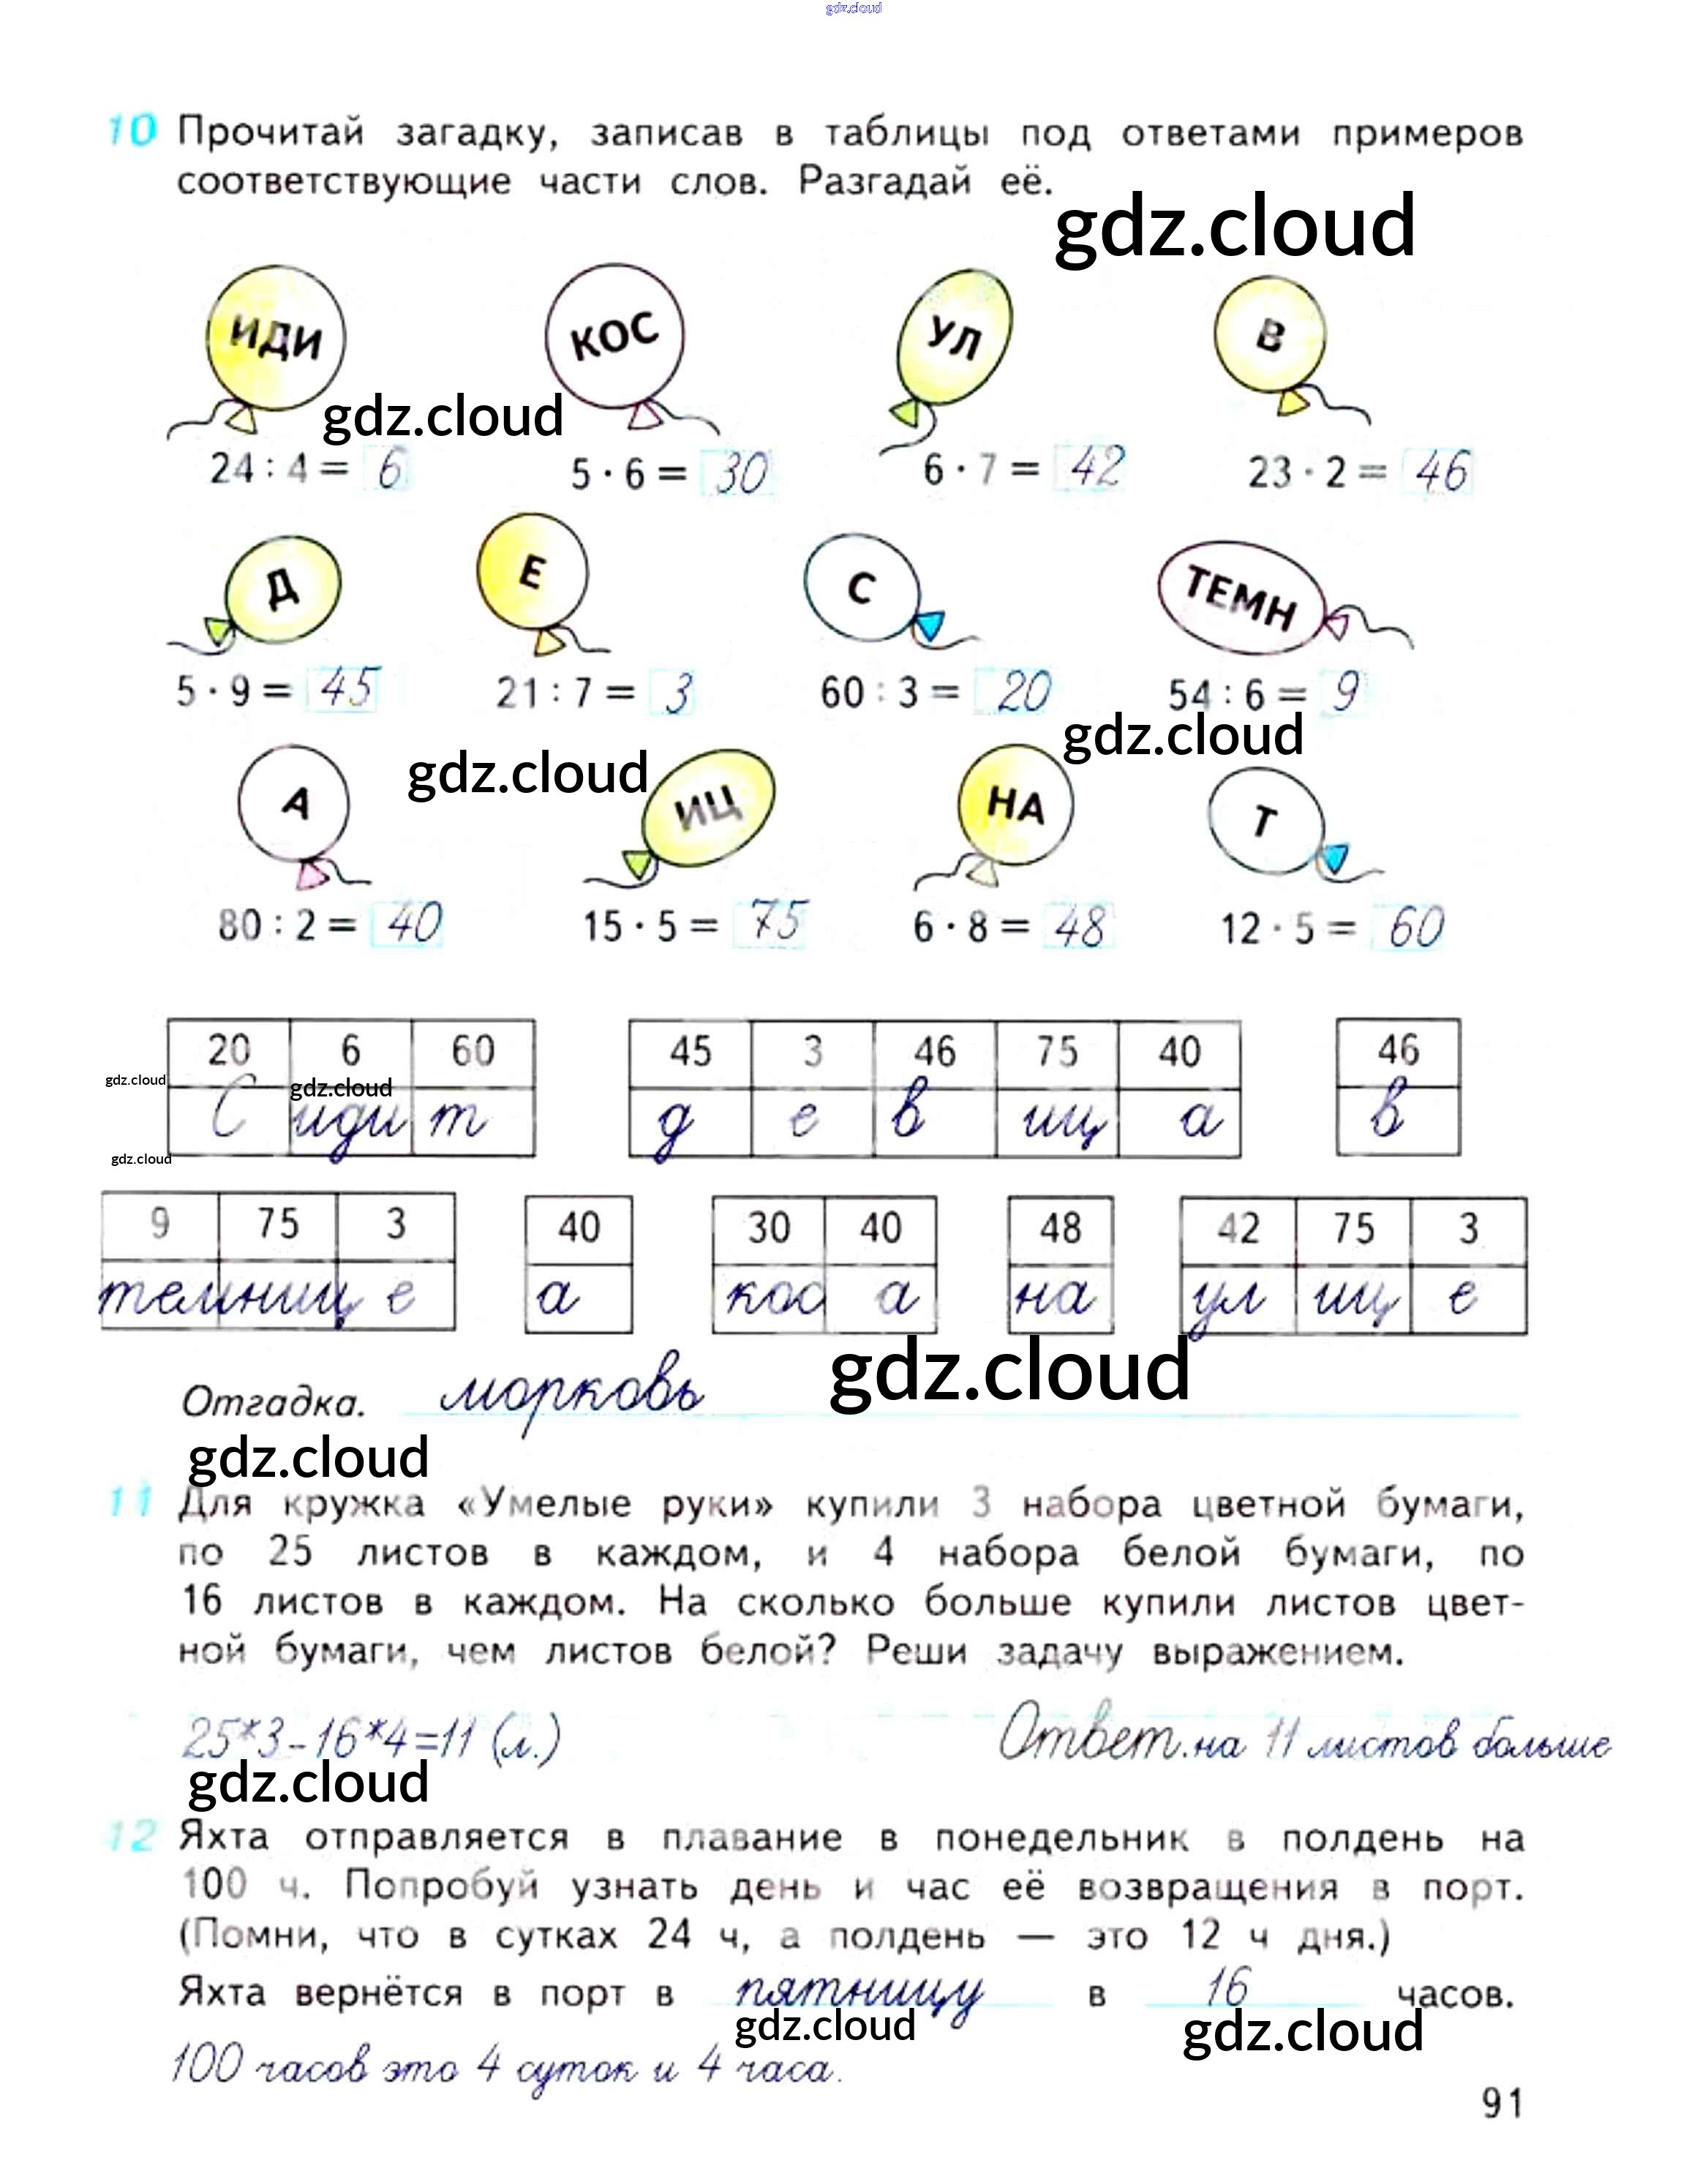 gdz.cloud
10 Прочитай загадку, записав в таблицы под ответами примеров
соответствующие части слов. Разгадай её.
gdz.cloud
ИДИ КОС УЛ В
gdz.cloud
24 : 4 = 6 5 · 6 = 30 6 · 7 = 42 23 · 2 = 46
Д Е С ТЕМН
5 · 9 = 45 21 : 7 = 3 60 : 3 = 20 54 : 6 = 9
gdz.cloud gdz.cloud
А ИЦ НА Т
80 : 2 = 40 15 · 5 = 75 6 · 8 = 48 12 · 5 = 60
20 6 60 45 3 46 75 40 46
gdz.cloud gdz.cloud
С иди т д е в иц а в
gdz.cloud
9 75 3 40 30 40 48 42 75 3
темниц е а кос а на ул иц е
Отгадка. морковь gdz.cloud
gdz.cloud
11 Для кружка «Умелые руки» купили 3 набора цветной бумаги,
по 25 листов в каждом, и 4 набора белой бумаги, по
16 листов в каждом. На сколько больше купили листов цвет-
ной бумаги, чем листов белой? Реши задачу выражением.
25*3-16*4=11 (л.) Ответ. на 11 листов больше
gdz.cloud
12 Яхта отправляется в плавание в понедельник в полдень на
100 ч. Попробуй узнать день и час её возвращения в порт.
(Помни, что в сутках 24 ч, а полдень — это 12 ч дня.)
Яхта вернётся в порт в пятницу в 16 часов.
gdz.cloud gdz.cloud
100 часов это 4 суток и 4 часа.
91